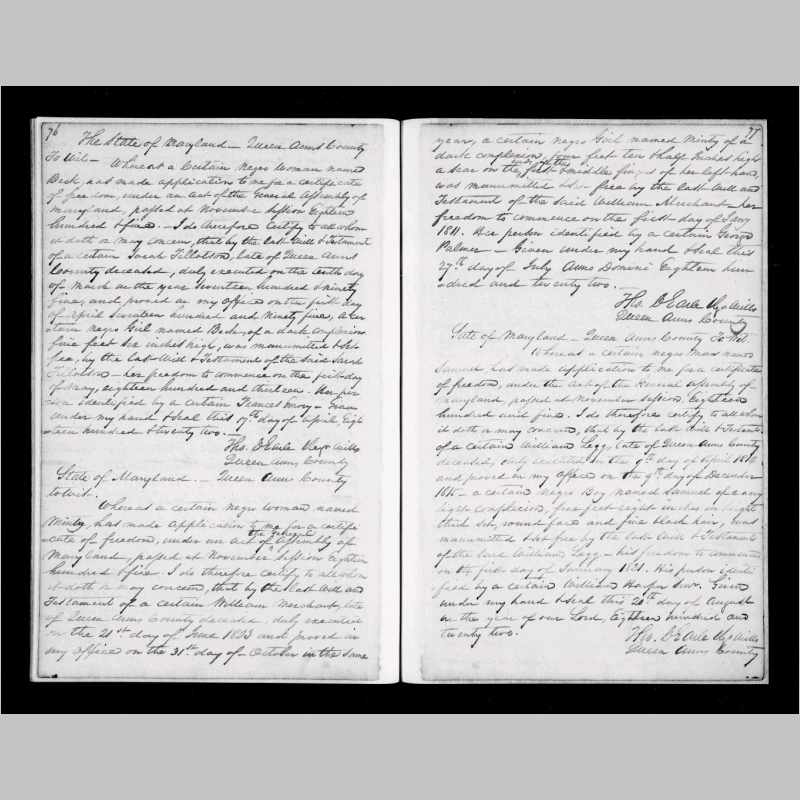 76
The State of Maryland – Queen Anns County
To Wit – Whereas a Certain negro woman name
Beck, has made application to me for a certificate
of freedom, under an act of the General Assembly of
Maryland, passed at November session Eighteen
hundred & five – I do therefore Certify to all whom
it doth or may concern, that by the last Will & Testament
of a certain Sarah Tillotson, late of Queen Anns
County deceased, duly executed on the tenth day
of March in the year Seventeen hundred and ninety
five, and proved in my office on the first day
of April seventeen hundred and Ninety five, a Cer
tain negro Girl named Beck, of a dark complexion
five feet six inches high, was manumitted & set
free, by the last Will & Testament of the Said Sarah
Tillotson – her freedom to commence on the first day
of eighteen hundred and thirteen. Her per
son identified by a certain Frances – Given
under my hand & Seal this 17th day of April Eigh
teen hundred & twenty two.
Ths. C Earle Regr Wills
Queen Anns County
State of Maryland. – Queen Anns County
to wit.
Whereas a certain negro woman named
Minty, has made application to me for a certifi
cate of freedom, under an act of the General Assembly of
Maryland, passed at November Session Eighteen
hundred & five. I do therefore certify to all whom
it doth or may concern, that by the last Will and
Testament of a certain William Merchant, late
of Queen Anns County deceased, duly executed
on the 21st day of June 1803 and proved in
my office on the 31st day of – October in the same
77
year, a certain negro Girl named Minty of a
dark complexion, feet ten & half Inches high
a scar on the first & middle fingers of her left hand,
was manumitted & set free by the last Will and
Testament of the Said William Merchant – her
freedom to commence on the first day of Jany
1811. Her person identified by a certain George
Palmer – Given under my hand & Seal this
27th day of July Anno Domini Eighteen hun
dred and twenty two. –
Ths. C Earle Regr Wills
Queen Anns County
State of Maryland – Queen Anns County To Wit.
Whereas a certain negro Man name
Samuel has made application to me for a certificate
of freedom, under the act of the General assembly of
Maryland, passed at November session, Eighteen
hundred and five. I do therefore certify to all whom
it doth or may concern, that by the last Will & Testament
of a certain William Legg, late of Queen Anns County
deceased, duly executed on the 9th day of April
and proved in my office on the 9th day of December
1815 – a certain negro Boy named Samuel of a very
light complexion, five feet eight inches in height
thick set, round face and fine black hair, was
manumitted & set free by the last Will & Testament
of the said William Legg – his freedom to commence
on the first day of January 1821. His person identi
fied by a certain William Harper Senr. Given
under my hand & Seal this 20th day of August
in the year of our Lord, Eighteen hundred and
twenty two.
Ths. C Earle Regr Wills
Queen Anns County